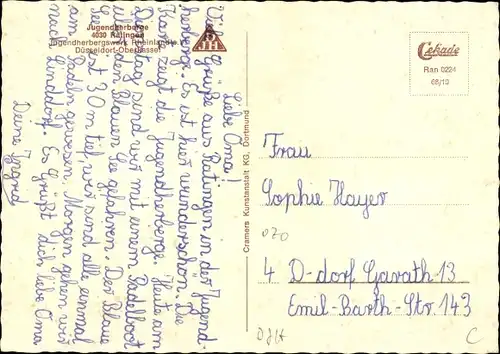 Jugendherberge
4030 Ratingen
Jugendherbergswerk Rheinland e.V.
Düsseldorf-Oberkassel
Cekade
Ran 0224
68/10
Cramers Kunstanstalt KG, Dortmund
Liebe Oma!
Viele grüße aus Ratingen in der Jugend-
herberge. Es ist hier wunderschön. Die
Karte zeigt die Jugendherberge. Heute am
Dienstag sind wir mit einem Padelboot
auf den Blauen See gefahren. Der Blaue
See ist 30 m tief, wir sind alle einmal
am Padeln gewesen. Morgen gehen wir
nach Linddorf. Es grüßt dich liebe Oma
Deine Ingrid
Frau
Sophie Hayer
4 D-dorf Garath 13
Emil-Barth-Str. 143